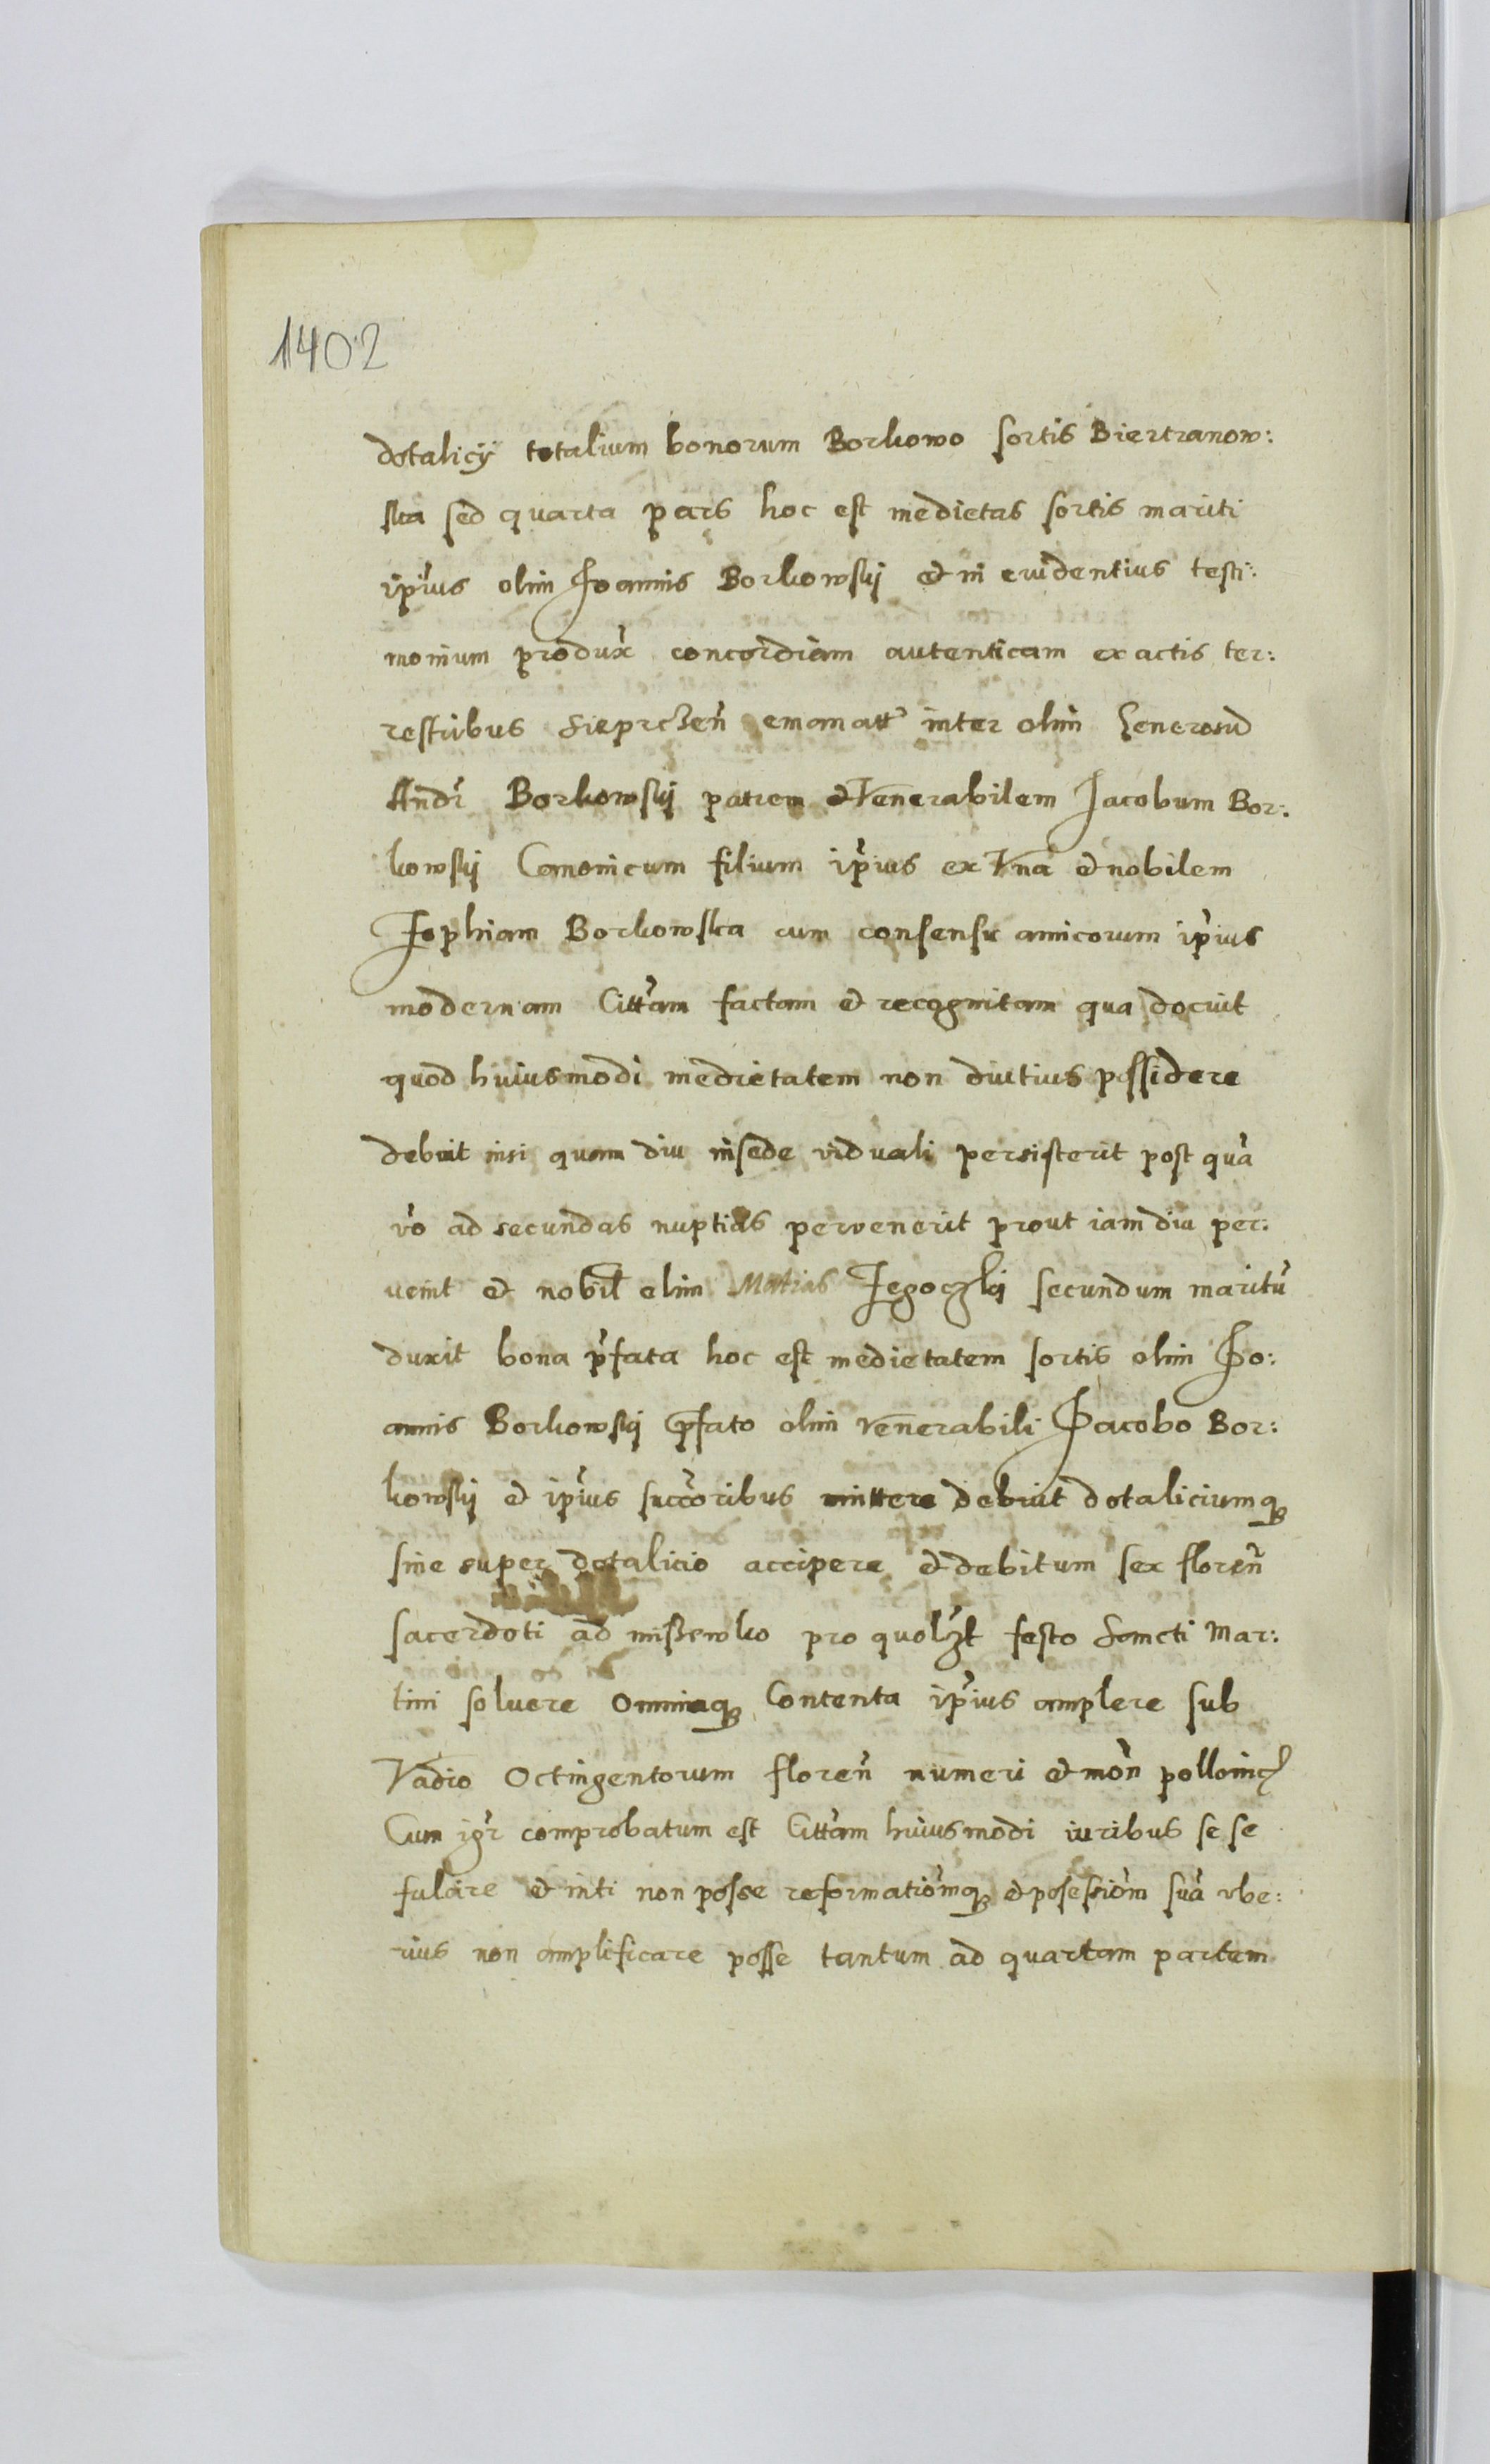 1402
dotalicÿ totalium bonorum Borkowo sortis Biertranow:
ska sed quarta pars hoc est medietas sortis mariti
ip̃ius olim Joannis Borkowskÿ et in euidentius testi:
monium produx̃ concordiam autenticam ex actis ter:
restribus Sieprczen̄ emanatt̃ inter olim Generosũ
Andr̃ Borkowskÿ patrem et Venerabilem Jacobum Bor:
kowskÿ Canonicum filium ip̃ius ex Vna et nobilem
Zophiam Borkowska cum consensu amicorum ip̃ius
modernam Citt̃am factam et recognitam qua docuit
quod huiusmodi medietatem non diutius possidere
debuit nisi quam diu in sede viduali persisterit post quã
ṽo ad secundas nuptias pervenerit prout iam diu per:
uenit et nobil̃ olim Matias Zegoczkÿ secundum maritũ
duxit bona p̃fata hoc est medietatem sortis olim Jo:
annis Borkowskÿ p̃fato olim Venerabili Jacobo Bor:
kowskÿ et ip̃ius succ̃oribus mittere debuit dotaliciumq;
sine super dotalicio accipere et debitum sex floren̄
sacerdoti ad miszewko pro quolzt festo Sancti Mar:
tini soluere omniaq; Contenta ip̃ius amplere sub
Vadio Octingentorum floren̄ numeri et mon̄ pollonic̃
Cum igr̃ comprobatum est Citt̃am huiusmodi iuribus se se
fulcire et inti non posse reformatiom̃q; et posessiom̃ suã vbe:
rius non amplificare posse tantum ad quartam partem